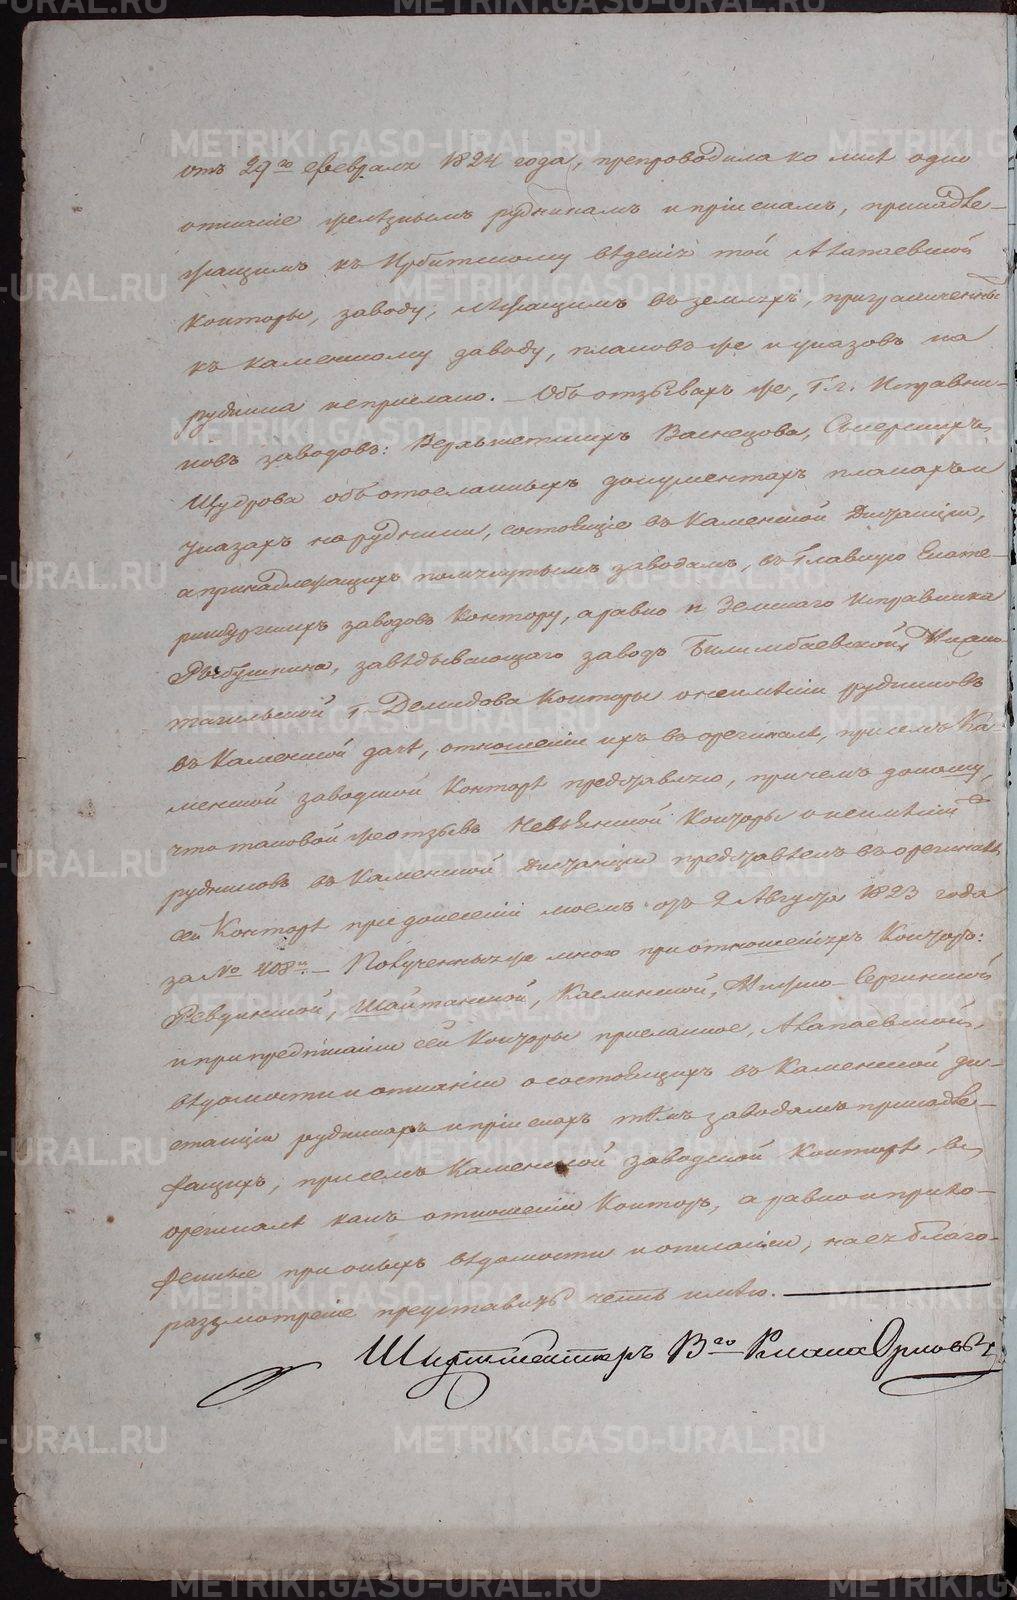 отъ 29го февраля 1824 года, препроводила ко мнѣ одно
описаніе желѣзнымъ рудникамъ и пріискамъ, принадле-
жащимъ къ Ирбитскому вѣденія той Алапаевской
Конторы, заводу, лѣжащимъ въ земляхъ, приграниченныхъ
къ Каменскому заводу, плановъ же и указовъ на
рудники неприслано. – Объ отзывахъ же, г.г. Исправни-
ковъ заводовъ: Верхъисетскихъ Васнецова, Сысертскихъ
Щудрова объ отосланныхъ документахъ планахъ и
указахъ на рудники, состоящіе въ Каменской Дистанціи,
а принадлежащихъ помянутымъ заводамъ, въ Главную Екате-
ринбургскихъ заводовъ Контору, а равно и Земскаго Исправника
Рыбушкина, завѣдывающаго заводъ Билимбаевской, Нижно-
тагильской г. Демидова Конторы о неимѣніи рудниковъ
въ Каменской дачѣ, отношеніи ихъ въ оргиналѣ, присемъ Ка-
менской заводской Конторѣ представляю, причемъ доношу,
что таковой же отзывъ Невьянской Конторы о неимѣніи
рудниковъ въ Каменской Дистанціи представленъ въ оргиналѣ
сей Конторѣ при донесеніи моемъ отъ 2 Августа 1823 года
за № 408м. – Полученныя же мною при отношеніяхъ Конторъ:
Ревдинской, Шайтанской, Каслинской, Нижно-Сергинской
и при предписаніи сей Конторы присланное, Алапаевской,
вѣдомости и описаніи о состоящихъ въ Каменской ди-
станціи рудникахъ и пріискахъ тѣмъ заводамъ принадле-
жащихъ, присемъ Каменской заводской Конторѣ, въ
оргиналѣ какъ отношеніи Конторъ, а равно и прило-
женные при оныхъ вѣдомости и описаніи, на ея благо-
разсмотреніе представить честь имѣю.
Шихтмейстеръ Вго Класса Орловъ
METRIKI.GASO-URAL.RU